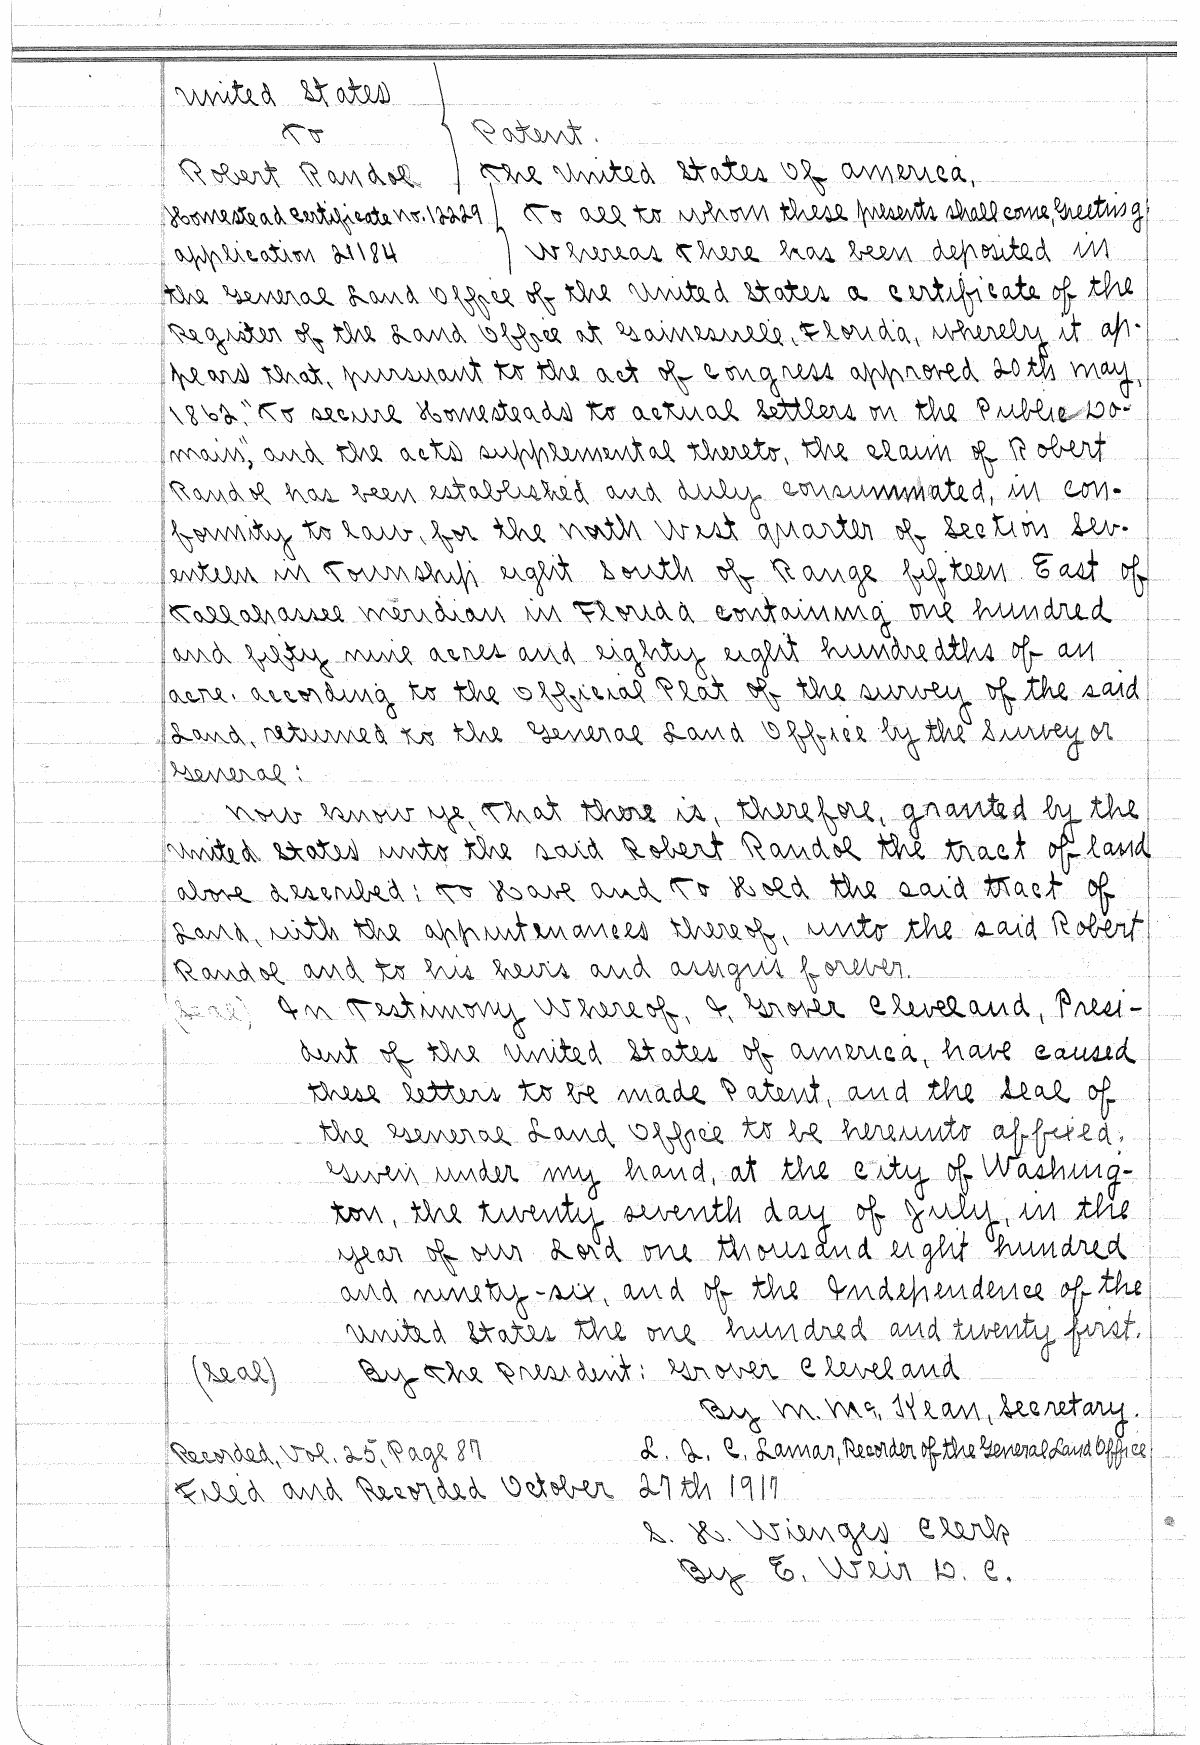 United States
To
Patent.
Robert Randol
The United States of America,
Homestead Certificate No. 12229
To all to whom these presents shall come, Greeting
application 21184
Whereas There has been deposited in
the General Land Office of the United States a certificate of the
Register of the Land Office at Gainesville, Florida, whereby it ap-
pears that, pursuant to the act of Congress approved 20th may,
1862, "To secure Homesteads to actual Settlers on the Public Do-
main", and the acts supplemental thereto, the claim of Robert
Randol has been established and duly consummated, in con-
formity to law, for the north West quarter of Section Sev-
enteen in Township eight South of Range fifteen East of
Tallahassee meridian in Florida containing one hundred
and fifty nine acres and eighty eight hundredths of an
acre. according to the Official Plat of the survey of the said
Land, returned to the General Land Office by the Surveyor
General:
Now know ye, That there is, therefore, granted by the
United States unto the said Robert Randol the tract of land
above described: To Have and To Hold the said tract of
Land, with the appurtenances thereof, unto the said Robert
Randol and to his heirs and assigns forever.
(Seal) In Testimony Whereof, I, Grover Cleveland, Presi-
dent of the United States of america, have caused
these letters to be made Patent, and the Seal of
the General Land Office to be hereunto affixed.
Given under my hand, at the City of Washing-
ton, the twenty seventh day of July, in the
year of our Lord one thousand eight hundred
and ninety-six, and of the Independence of the
United States the one hundred and twenty first.
(Seal) By The President: Grover Cleveland
By M. McKean, Secretary.
Recorded, Vol. 25, Page 87 L. Q. C. Lamar, Recorder of the General Land Office
Filed and Recorded October 27th 1917
S. H. Wienges Clerk
By E. Weir D. C.